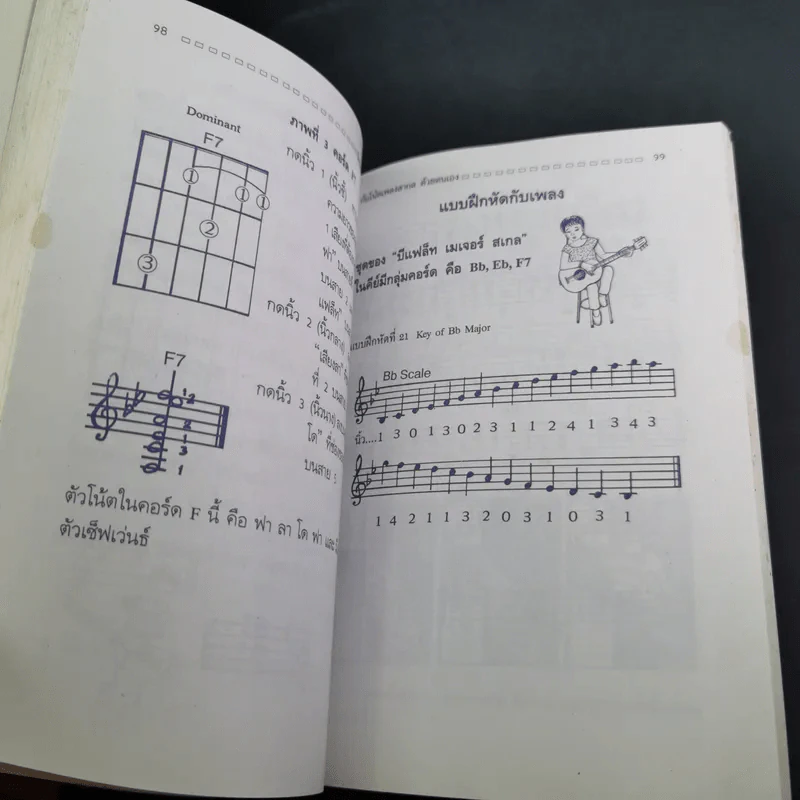 98
Dominant
F7
1
1 1
2
3
ภาพที่ 3 คอร์ด
กดนิ้ว 1 (นิ้วชี้)
1 เสียงที่ได้
ฟา" บนสาย
บนสาย 2
แฟล็ท"
กดนิ้ว 2 (นิ้วกลาง)
"เสียงลา"
ที่ 2 บนสาย
กดนิ้ว 3 (นิ้วนาง)
โด"
บนสาย 5
F7
1 2
2
1
3
1
ตัวโน้ตในคอร์ด F นี้ คือ ฟา ลา โด ฟา และ
ตัวเซ็ฟเว่นธ์
99
ด้วยตนเอง
แบบฝึกหัดกับเพลง
ชุดของ "บีแฟล็ท เมเจอร์ สเกล"
ในคีย์มีกลุ่มคอร์ด คือ Bb, Eb, F7
แบบฝึกหัดที่ 21 Key of Bb Major
Bb Scale
นิ้ว.... 1 3 0 1 3 0 2 3 1 1 2 4 1 3 4 3
1 4 2 1 1 3 2 0 3 1 0 3 1